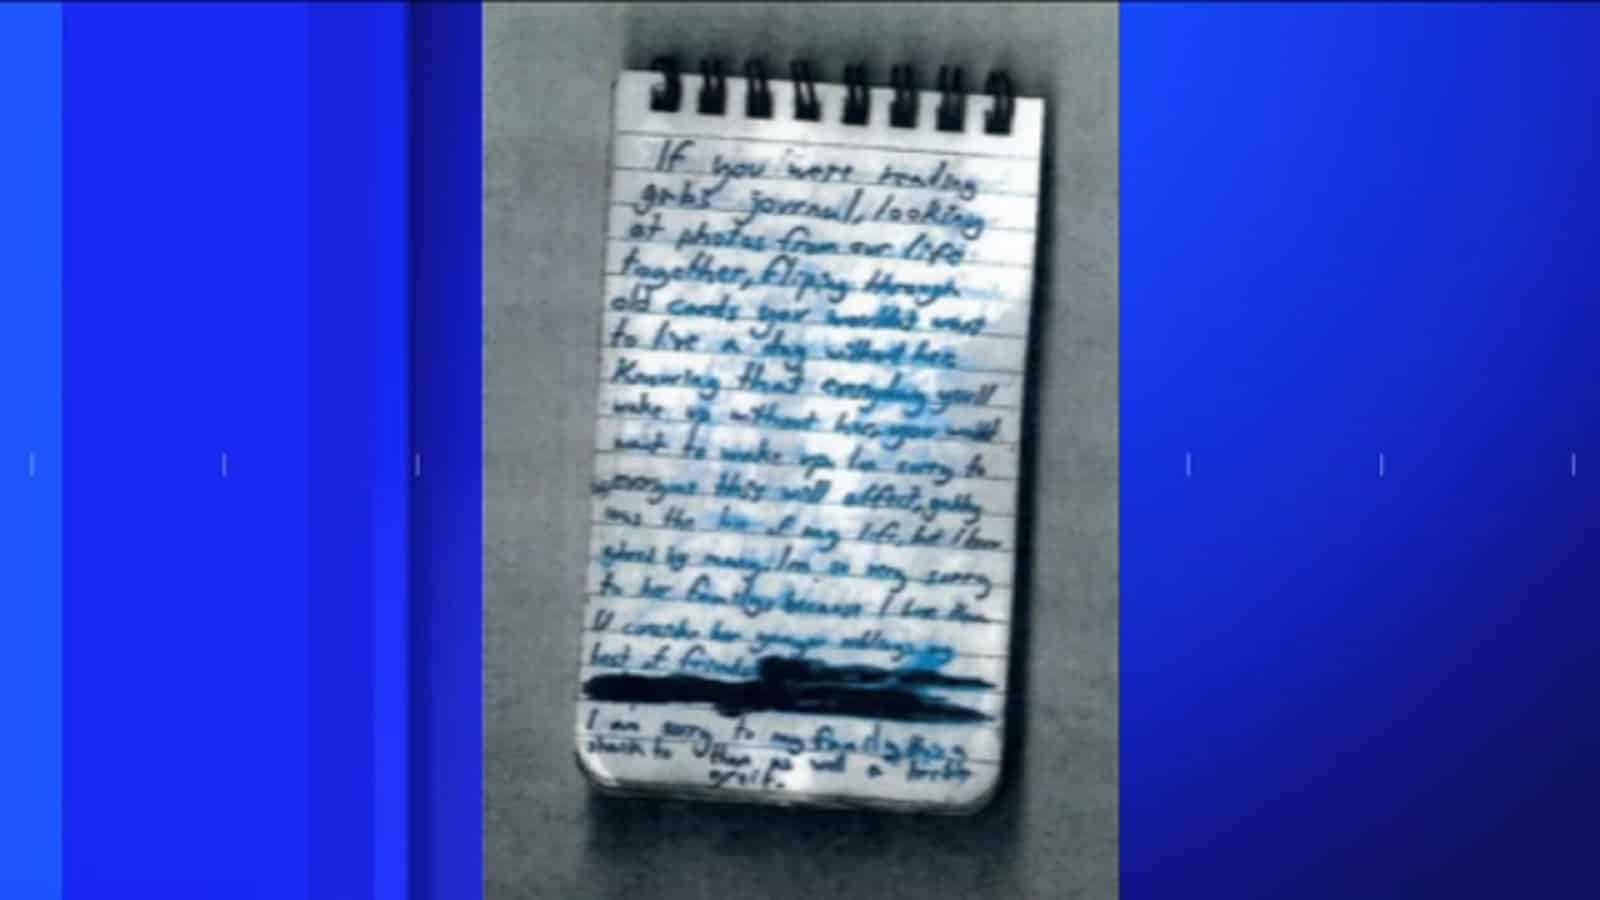 If you were reading
gabs journal, looking
at photos from our life
together, fliping through
old cards you wouldn't want
to live a day without her.
Knowing that everyday you'll
wake up without her, you wouldn't
want to wake up. I'm sorry to
everyone this will affect, gabby
was the love of my life, but I know
adored by many. I'm so very sorry
to her family because I love them
I'd consider her younger siblings my
best of friends
I am sorry to my family, this is a
shock to them as well a terrible
greif.